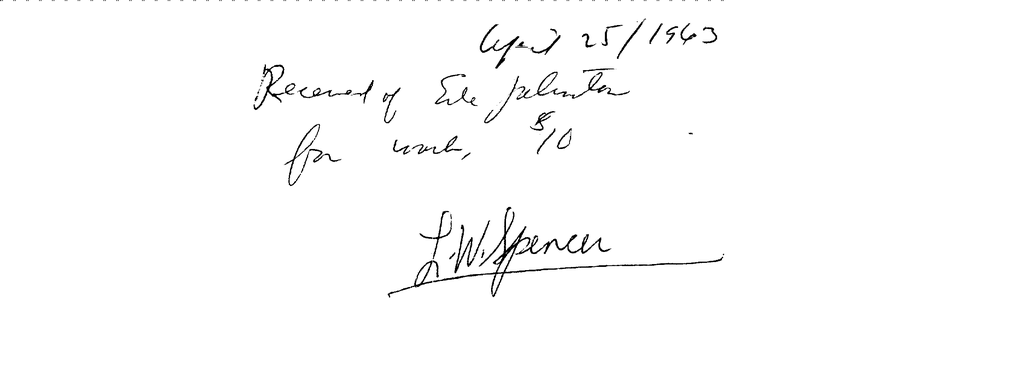 April 25/1963
Received of Erle Johnston
for work, $10
L.W. Spencer